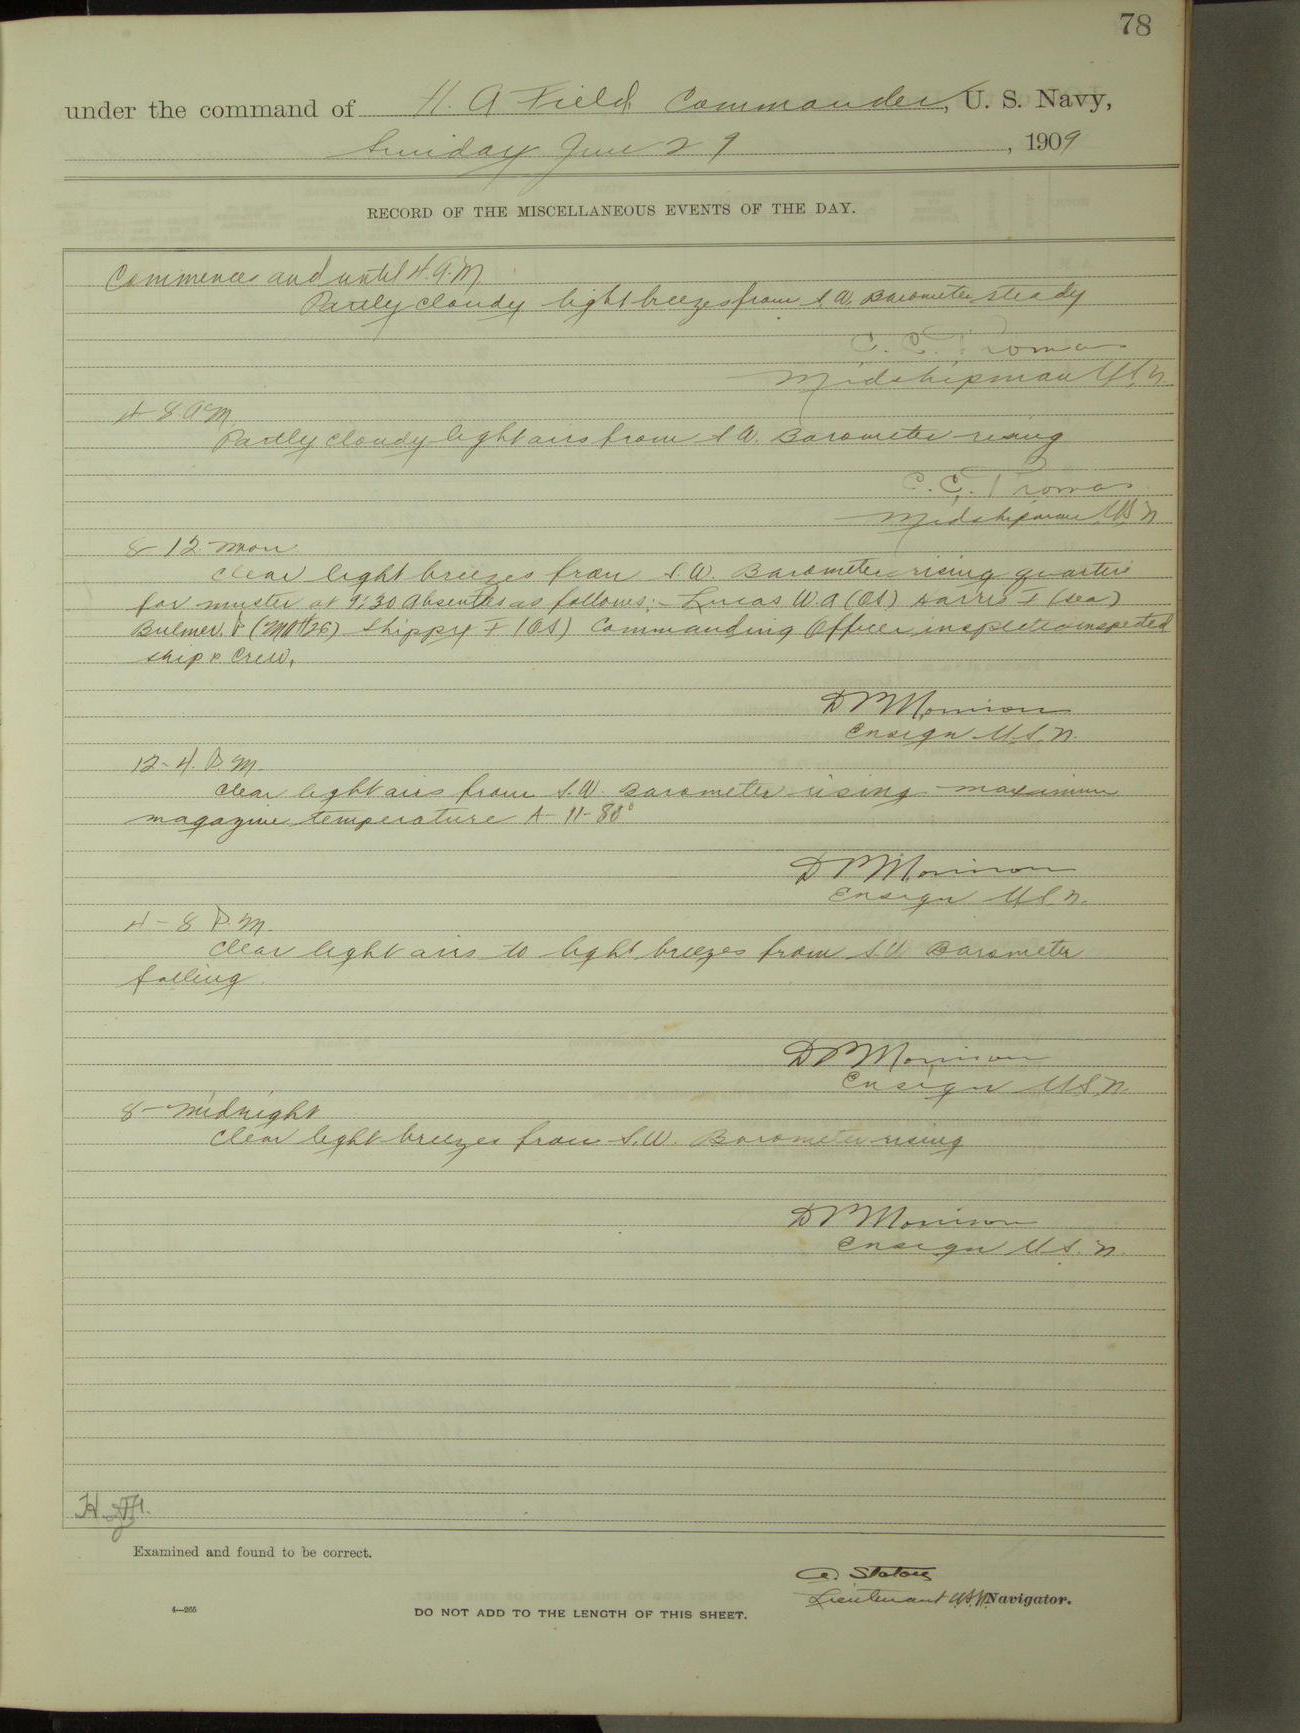 78
under the command of H. A Field Commander, U. S. Navy,
Sunday June 29, 1909
RECORD OF THE MISCELLANEOUS EVENTS OF THE DAY.
Commences and until 4. A. M.
Partly cloudy light breezes from S W. Barometer steady
C. C. Thomas
Midshipman U.S.N.
4-8 A M.
Partly cloudy light airs from S W. Barometer rising
C. C. Thomas
Midshipman U.S.N
8-12 noon
Clear light breezes from S.W. Barometer rising quarters
for muster at 9:30 Absentees as follows:- Lucas W. A (OS) Harris I (Sea)
Bulmer. P (MM 26) Shippy F (OS) Commanding Officer inspected
ship & Crew.
D P Morrison
Ensign U.S.N.
12-4. P. M.
Clear light airs from S.W. Barometer rising maximum
magazine temperature A-11-88°
D P Morrison
Ensign U.S.N.
4-8 P. M.
Clear light airs to light breezes from S.W Barometer
falling.
D P Morrison
Ensign U.S.N.
8-Midnight
Clear light breezes from S.W. Barometer rising
D P Morrison
Ensign U.S.N.
Examined and found to be correct.
Lieutenant U.S.N. Navigator.
4—266
DO NOT ADD TO THE LENGTH OF THIS SHEET.